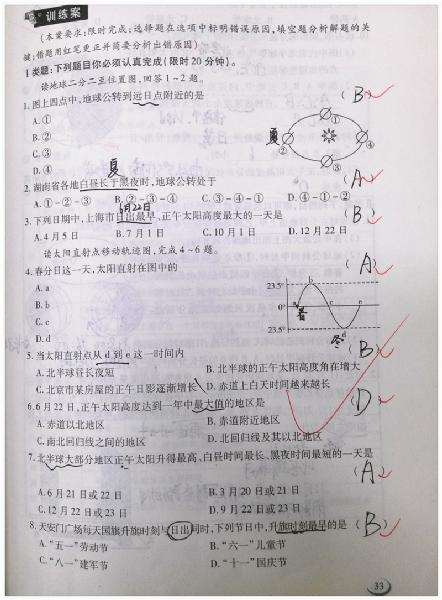 训练案
(本案要求:限时完成;选择题在选项中标明错误原因,填空题分析解题的关
键;错题用红笔更正并简要分析出错原因)
Ⅰ类题:下列题目你必须认真完成(限时20分钟)。
读地球二分二至位置图,回答1~2题。
1.图上四点中,地球公转到远日点附近的是 (B)
A.①
B.②
C.③
D.④
① 夏 ② ③ ④
夏
2.湖南省各地白昼长于黑夜时,地球公转处于 (A)
A.①-②-③ B.②-③-④ C.③-④-① D.④-①-②
6月22日
3.下列日期中,上海市日出最早、正午太阳高度最大的一天是 (B)
A.4月5日 B.7月1日 C.10月1日 D.12月22日
读太阳直射点移动轨迹图,完成4~6题。
4.春分日这一天,太阳直射在图中的 (A)
A.a
B.b
C.c
D.d
23.5° b
0° a 春 c e
23.5° d 冬
5.当太阳直射点从d到e这一时间内 (B)
A.北半球昼长夜短 B.北半球的正午太阳高度角在增大
C.北京市某房屋的正午日影逐渐增长 D.赤道上白天时间越来越长
6.6月22日,正午太阳高度达到一年中最大值的地区是 (D)
A.赤道以北地区 B.赤道附近地区
C.南北回归线之间的地区 D.北回归线及其以北地区
7.北半球大部分地区正午太阳升得最高、白昼时间最长、黑夜时间最短的一天是
(A)
A.6月21日或22日 B.3月20日或21日
C.12月22日或23日 D.9月22日或23日
8.天安门广场每天国旗升旗时刻与日出同时,下列节日中,升旗时刻最早的是 (B)
A.“五一”劳动节 B.“六一”儿童节
C.“八一”建军节 D.“十一”国庆节
33